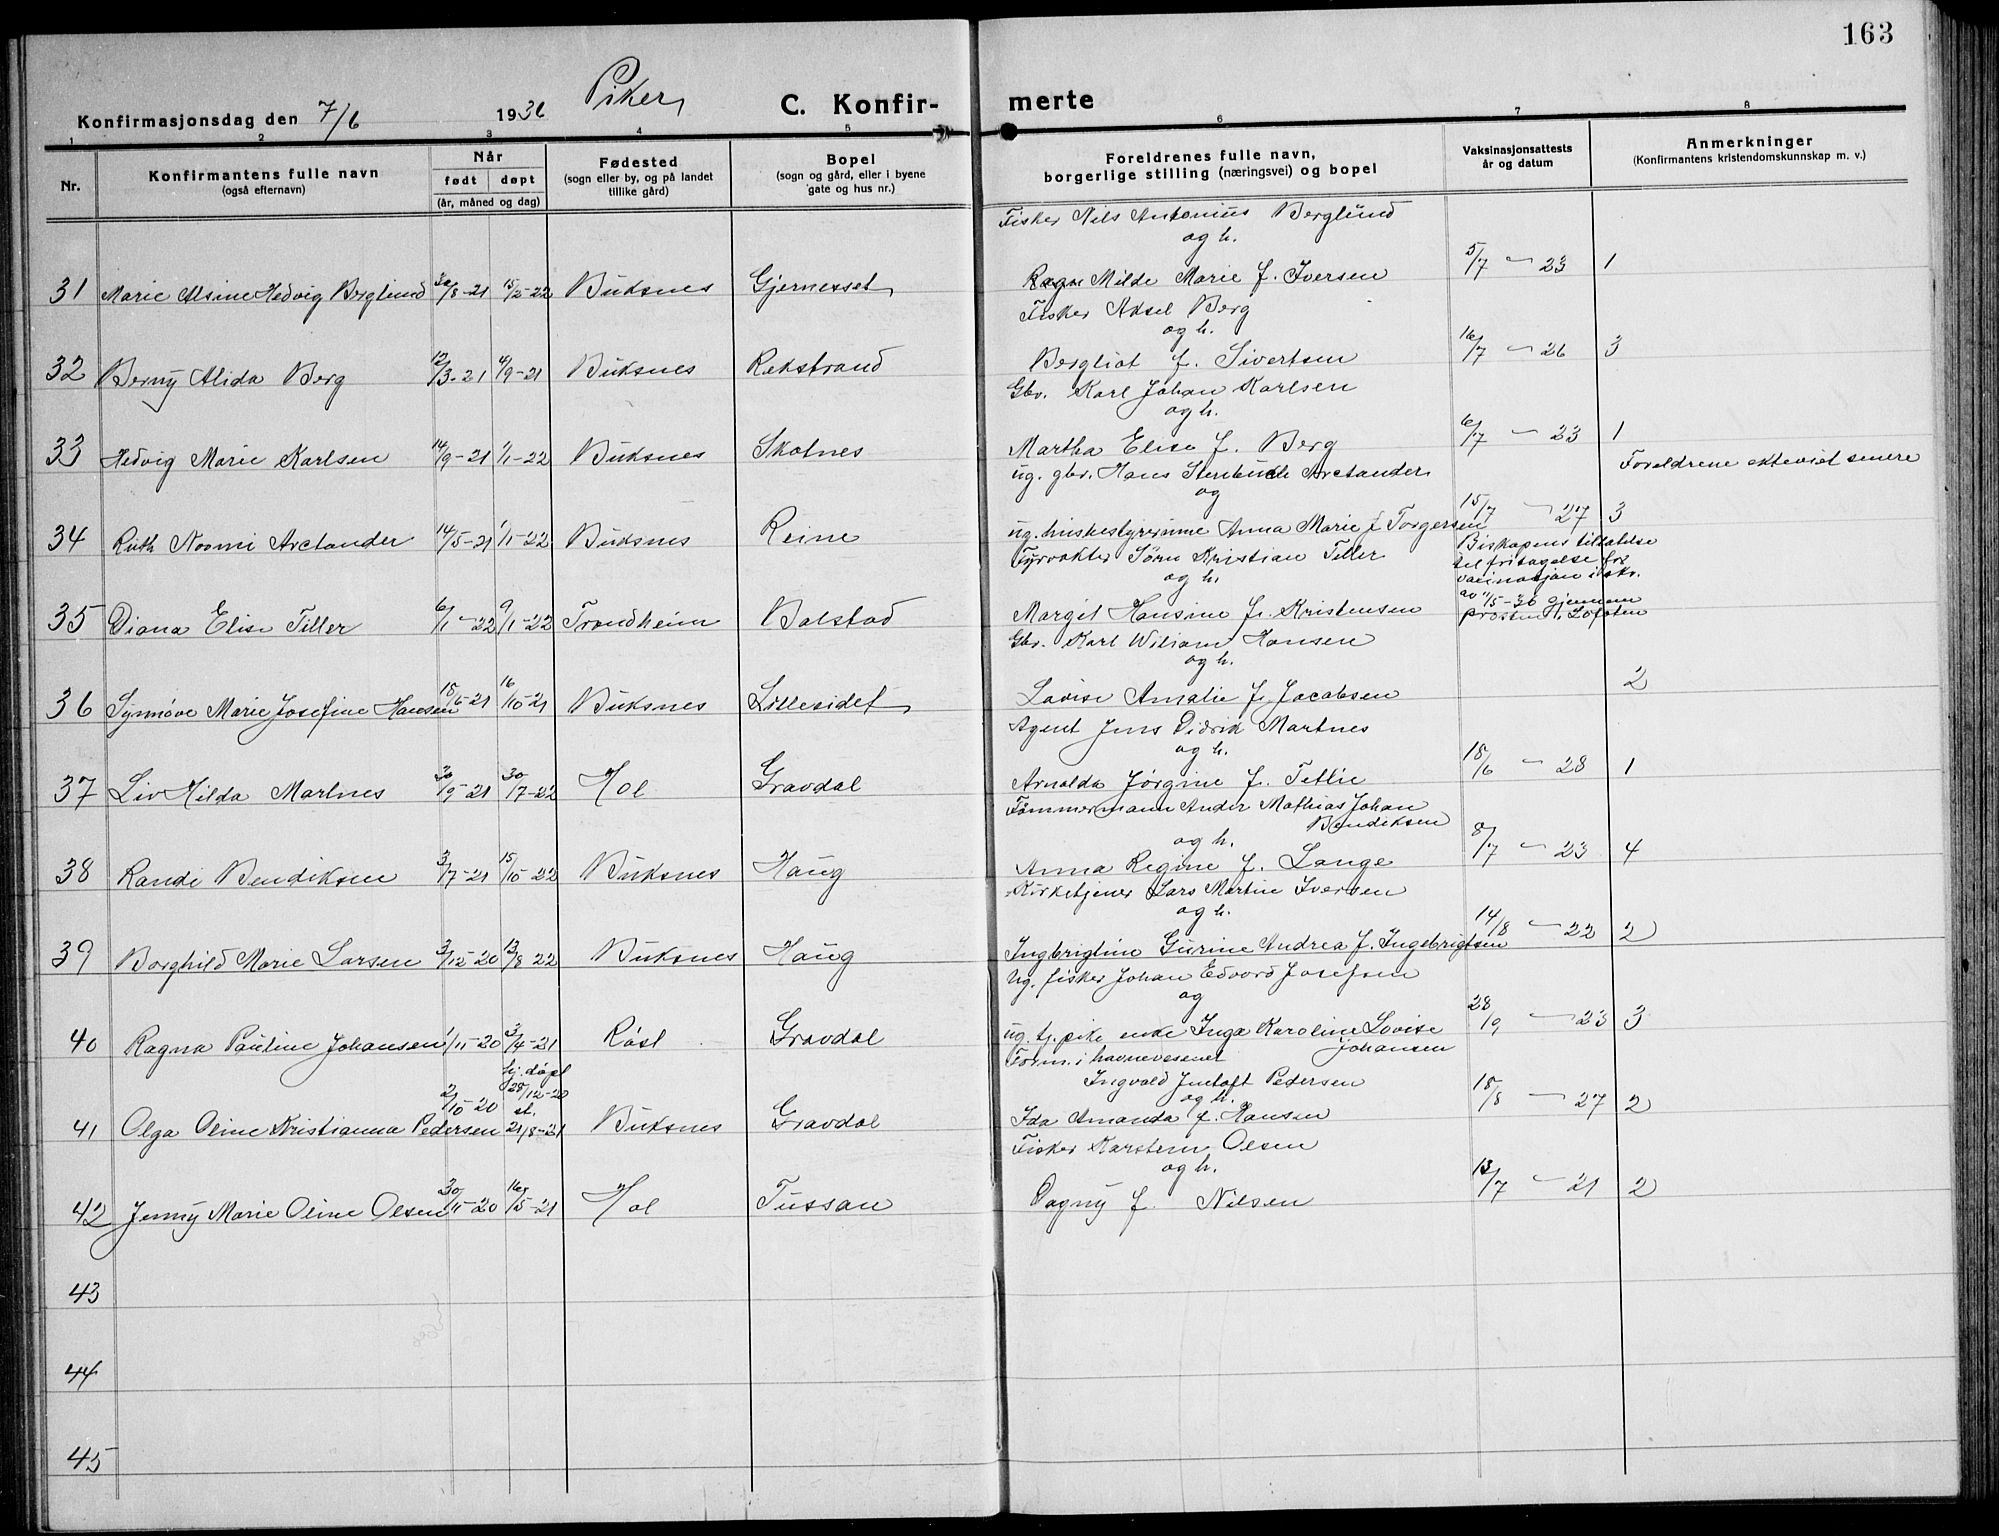 163
Konfirmasjonsdag den 7/6 1936 Piker C. Konfir- merte
1 2 3 4 5 6 7 8
Nr.
Konfirmantens fulle navn
(også efternavn)
Når
født døpt
(år, måned og dag)
Fødested
(sogn eller by, og på landet
tillike gård)
Bopel
(sogn og gård, eller i byene
gate og hus nr.)
Foreldrenes fulle navn,
borgerlige stilling (næringsvei) og bopel
Vaksinasjonsattests
år og datum
Anmerkninger
(Konfirmantens kristendomskunnskap m. v.)
Fisker Nils Antonius Berglund
og h.
31 Marie Alsine Hedvig Berglund 30/8-21 15/2-22 Buksnes Gjernesset Milde Marie f. Iversen 5/7 - 23 1
Fisker Aksel Berg
og h.
32 Berny Alida Berg 12/3-21 4/9-21 Buksnes Rekstrand Bergliot f. Sivertsen 16/7 - 26 3
Gbr. Karl Johan Karlsen
og h.
33 Hedvig Marie Karlsen 14/9-21 1/1-22 Buksnes Skotnes Martha Elise f. Berg 6/7 - 23 1
ug. gbr. Hans Arctander Foreldrene ekteviet senere
og
34 Ruth Noomi Arctander 14/5-21 1/1-22 Buksnes Reine ug. husbestyrerinne Anna Marie f. Torgersen 15/7 - 27 3
Fyrvokter Sørn Kristian Teller Biskopens tillatelse
og h. til fritagelse for
vaksinasjon i skr.
35 Diana Elise Tiller 6/1-22 9/1-22 Trondheim Balstad Margit Hansine f. Kristensen av 11/5-36 gjennem
prosten i Lofoten
Gbr. Karl Wiliam Hansen
og h.
36 Synnøve Marie Josefine Hansen 18/6-21 16/10-21 Buksnes Lilleeidet Lovise Amalie f. Jacobsen 2
Agent Jens Didrik Martnes
og h.
37 Liv Hilda Martnes 30/9-21 30/7-22 Hol Gravdal Arnolda Jørgine f. Tetlie 18/6 - 28 1
Tømmermann Ander Mathias Johan
Bendiksen
og h.
38 Randi Bendiksen 3/7-21 15/10-22 Buksnes Haug Anna Regine f. Lange 8/7 - 23 4
Kirketjener Lars Martin Iversen
og h.
39 Borghild Marie Larsen 3/12-20 13/8 22 Buksnes Haug Ingbrigtine Gurine Andrea f. Ingebrigtsen 14/8 - 22 2
Ug. fisker Johan Edvard Josefsen
og
40 Ragna Pauline Johansen 1/11-20 3/4-21 Røst Gravdal ug. tj. pike enke Inga Karoline Lovise 28/9 - 23 3
Johansen
Form. i havnevesenet
hj. døpt
28/12-20
st.
Ingvald Justoft Pedersen
og h.
41 Olga Oline Kristianna Pedersen 2/10-20 21/8-21 Buksnes Gravdal Ida Amanda f. Hansen 18/8 - 27 2
Fisker Karstein Olsen
og h.
42 Jenny Marie Oline Olsen 30/11-20 16/5-21 Hol Tussan Dagny f. Nilsen 13/7 - 21 2
43
44
45